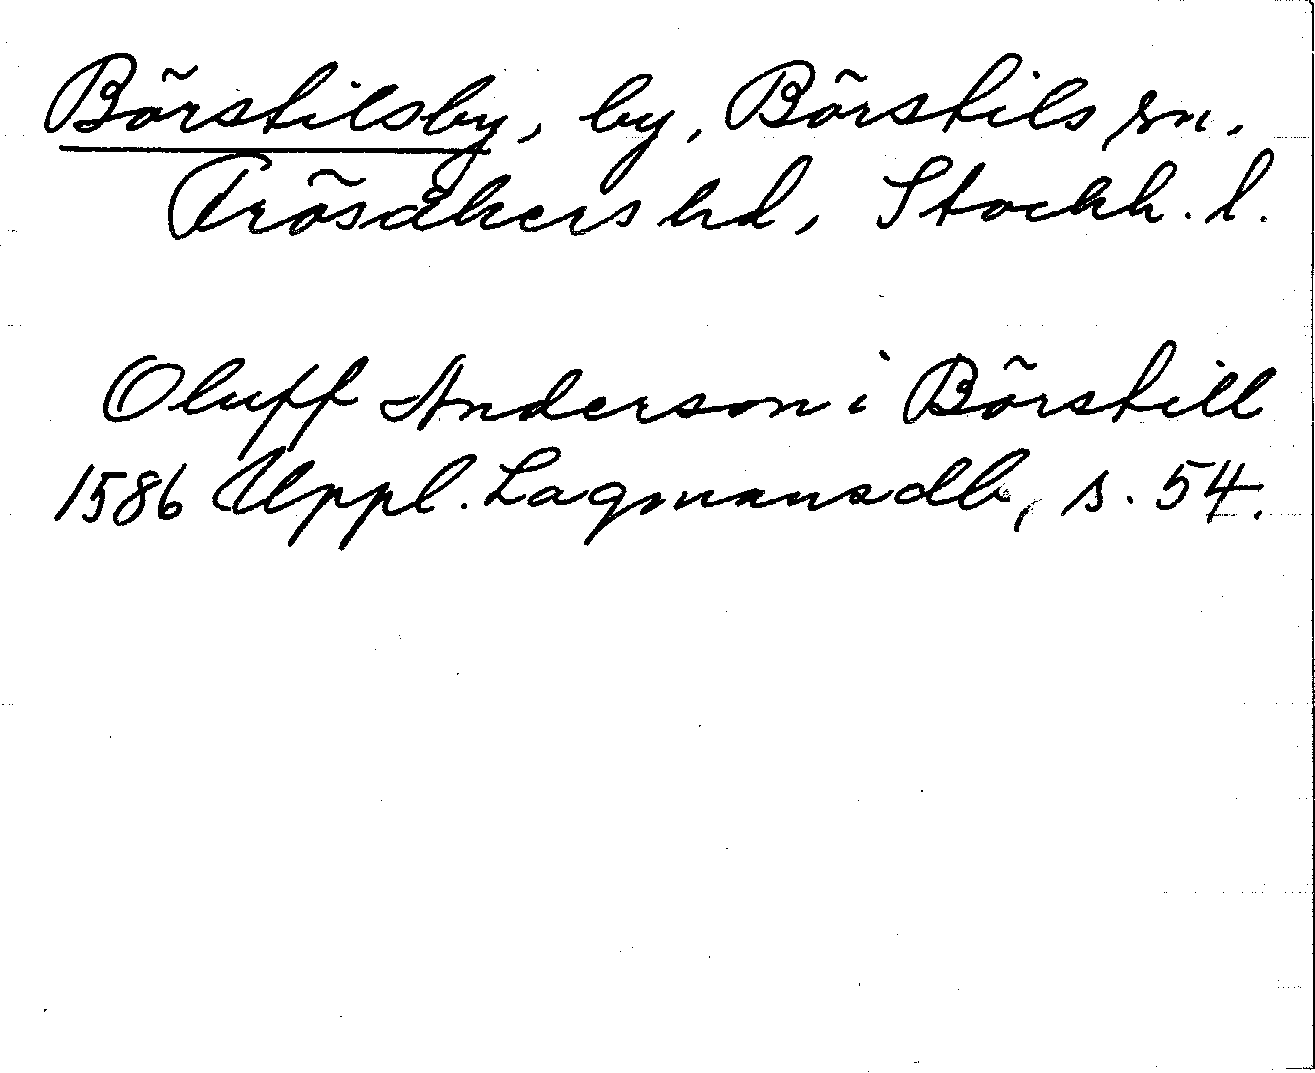 Börstilsby, by, Börstils sn.
Frösåkers hd, Stockh. l.
Oluff Anderson i Börstill
1586 Uppl. Lagmansdb, s. 54.